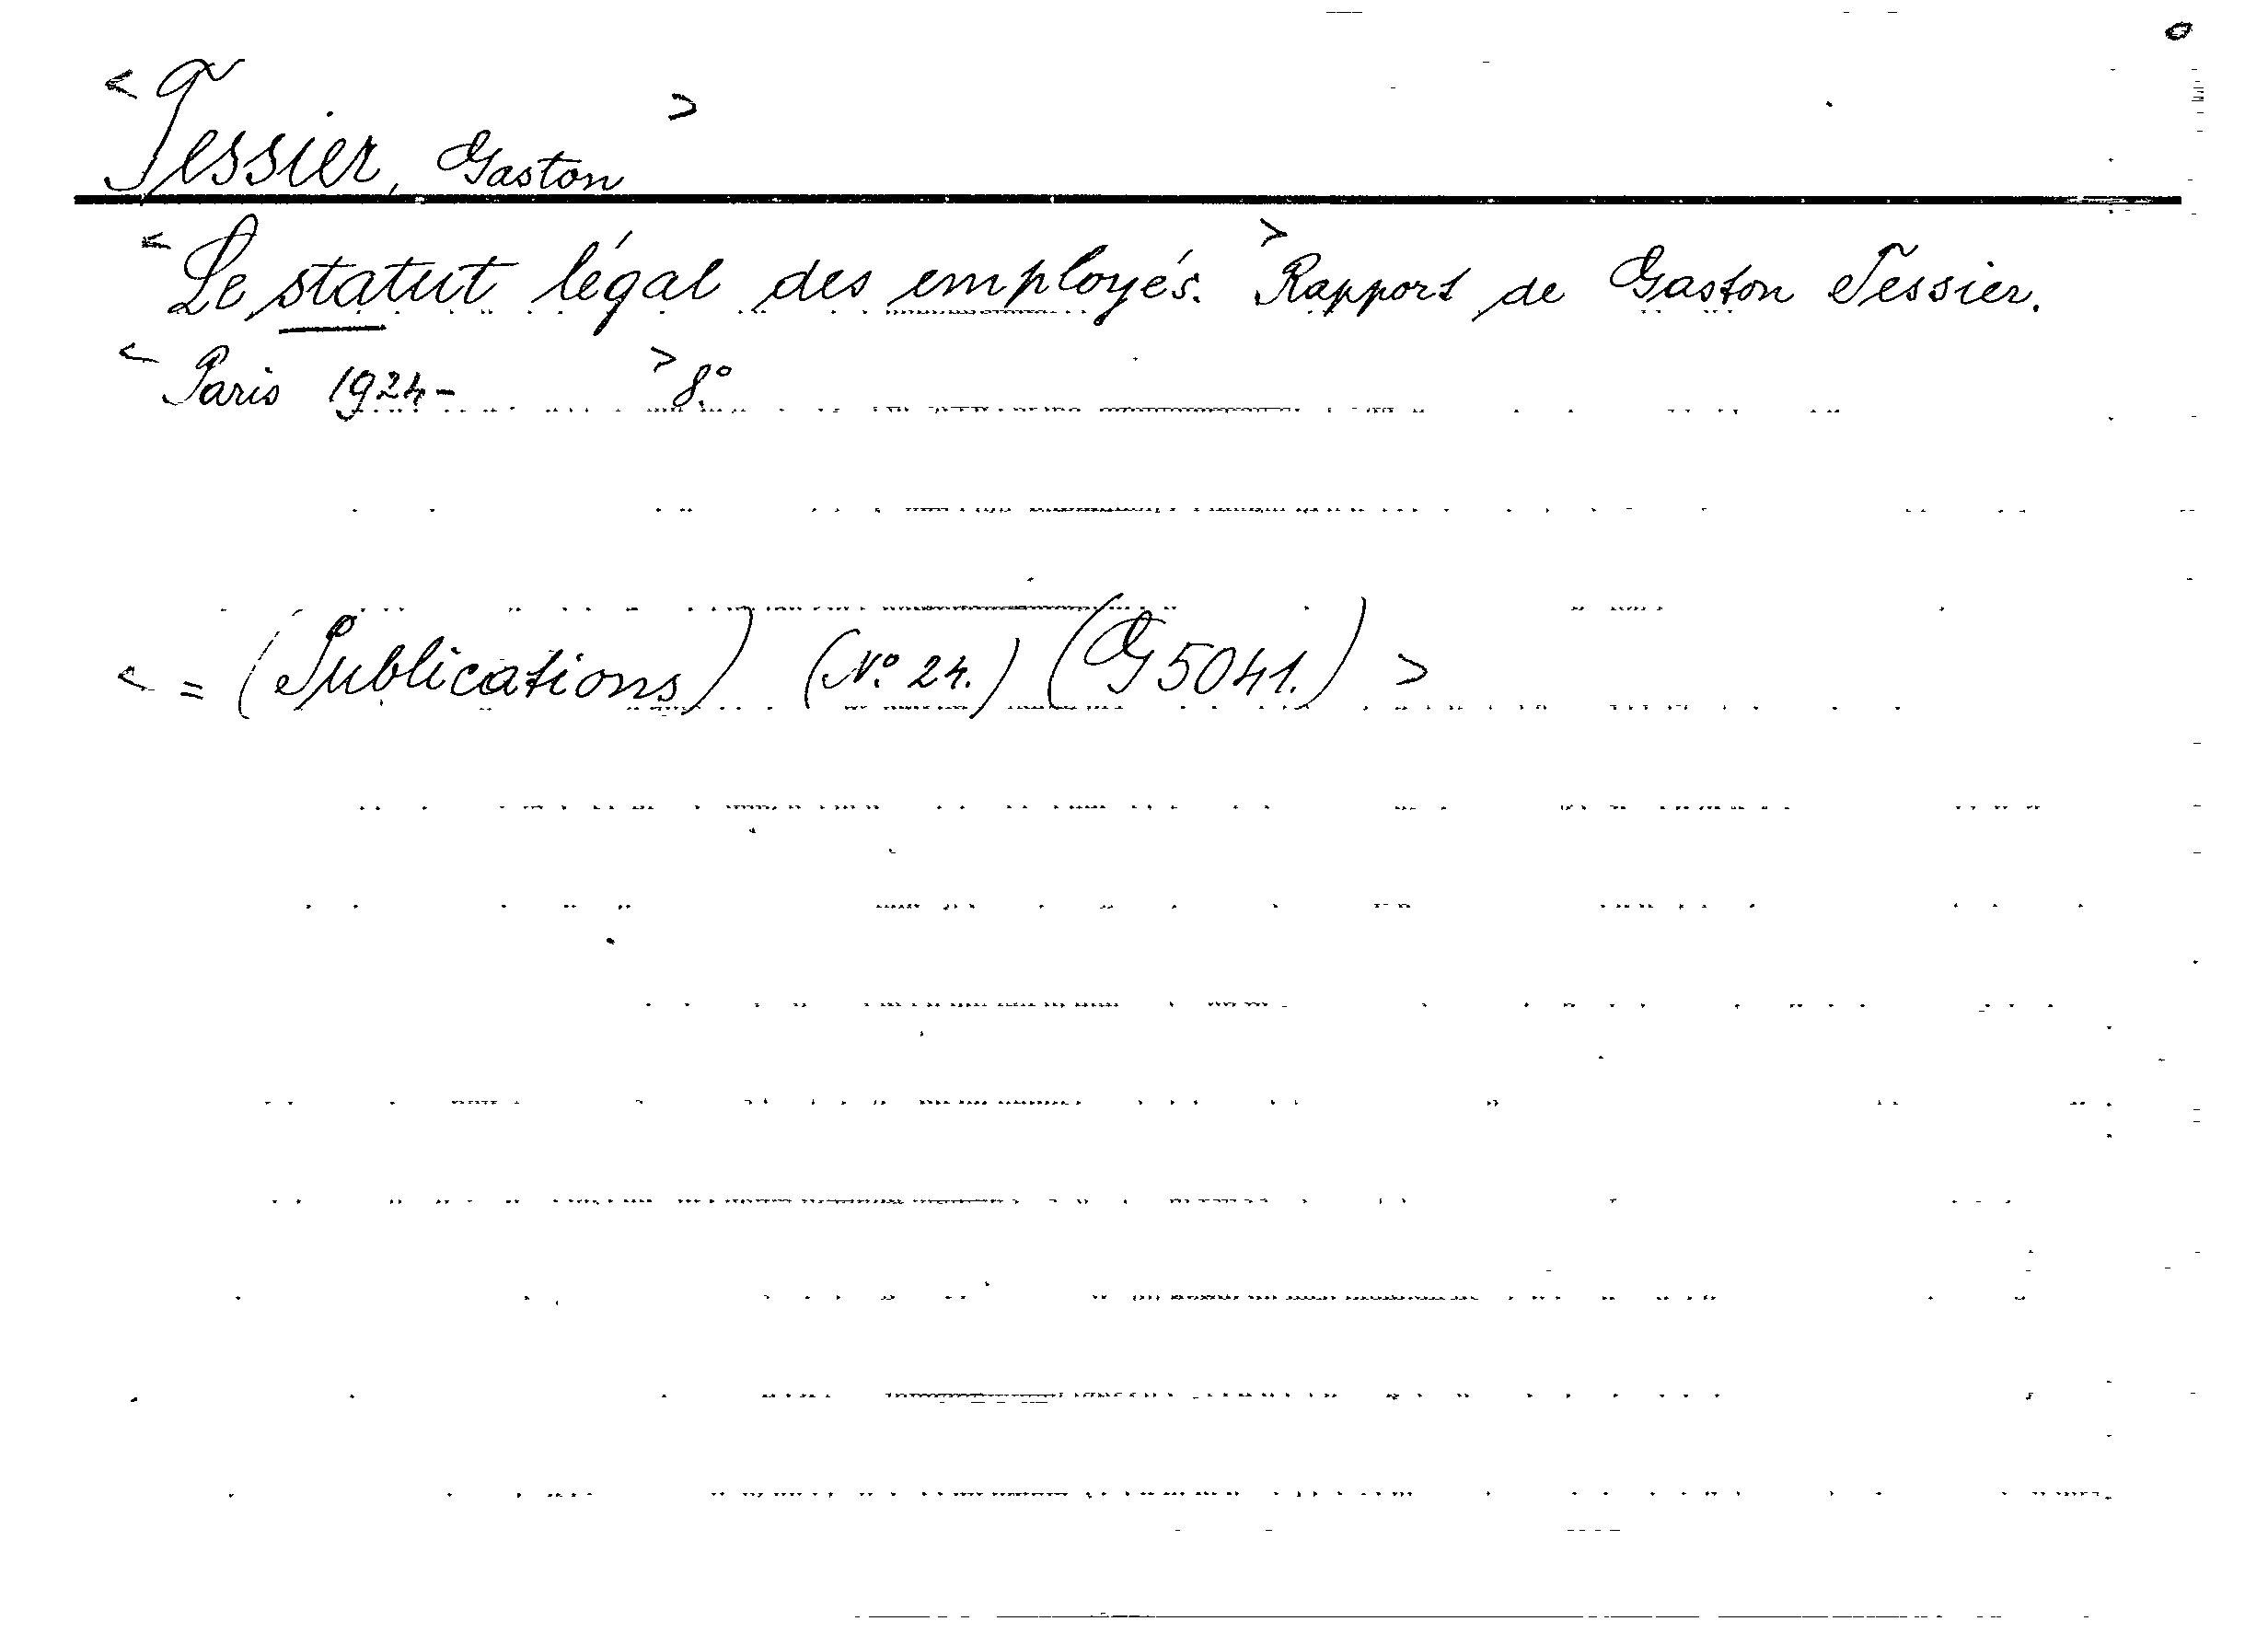 < Tessier, Gaston >
< Le statut légal des employés. > Rapport de Gaston Tessier.
< Paris 1924- > 8.°
< = (Publications) (N.° 24.) (G 5041.) >